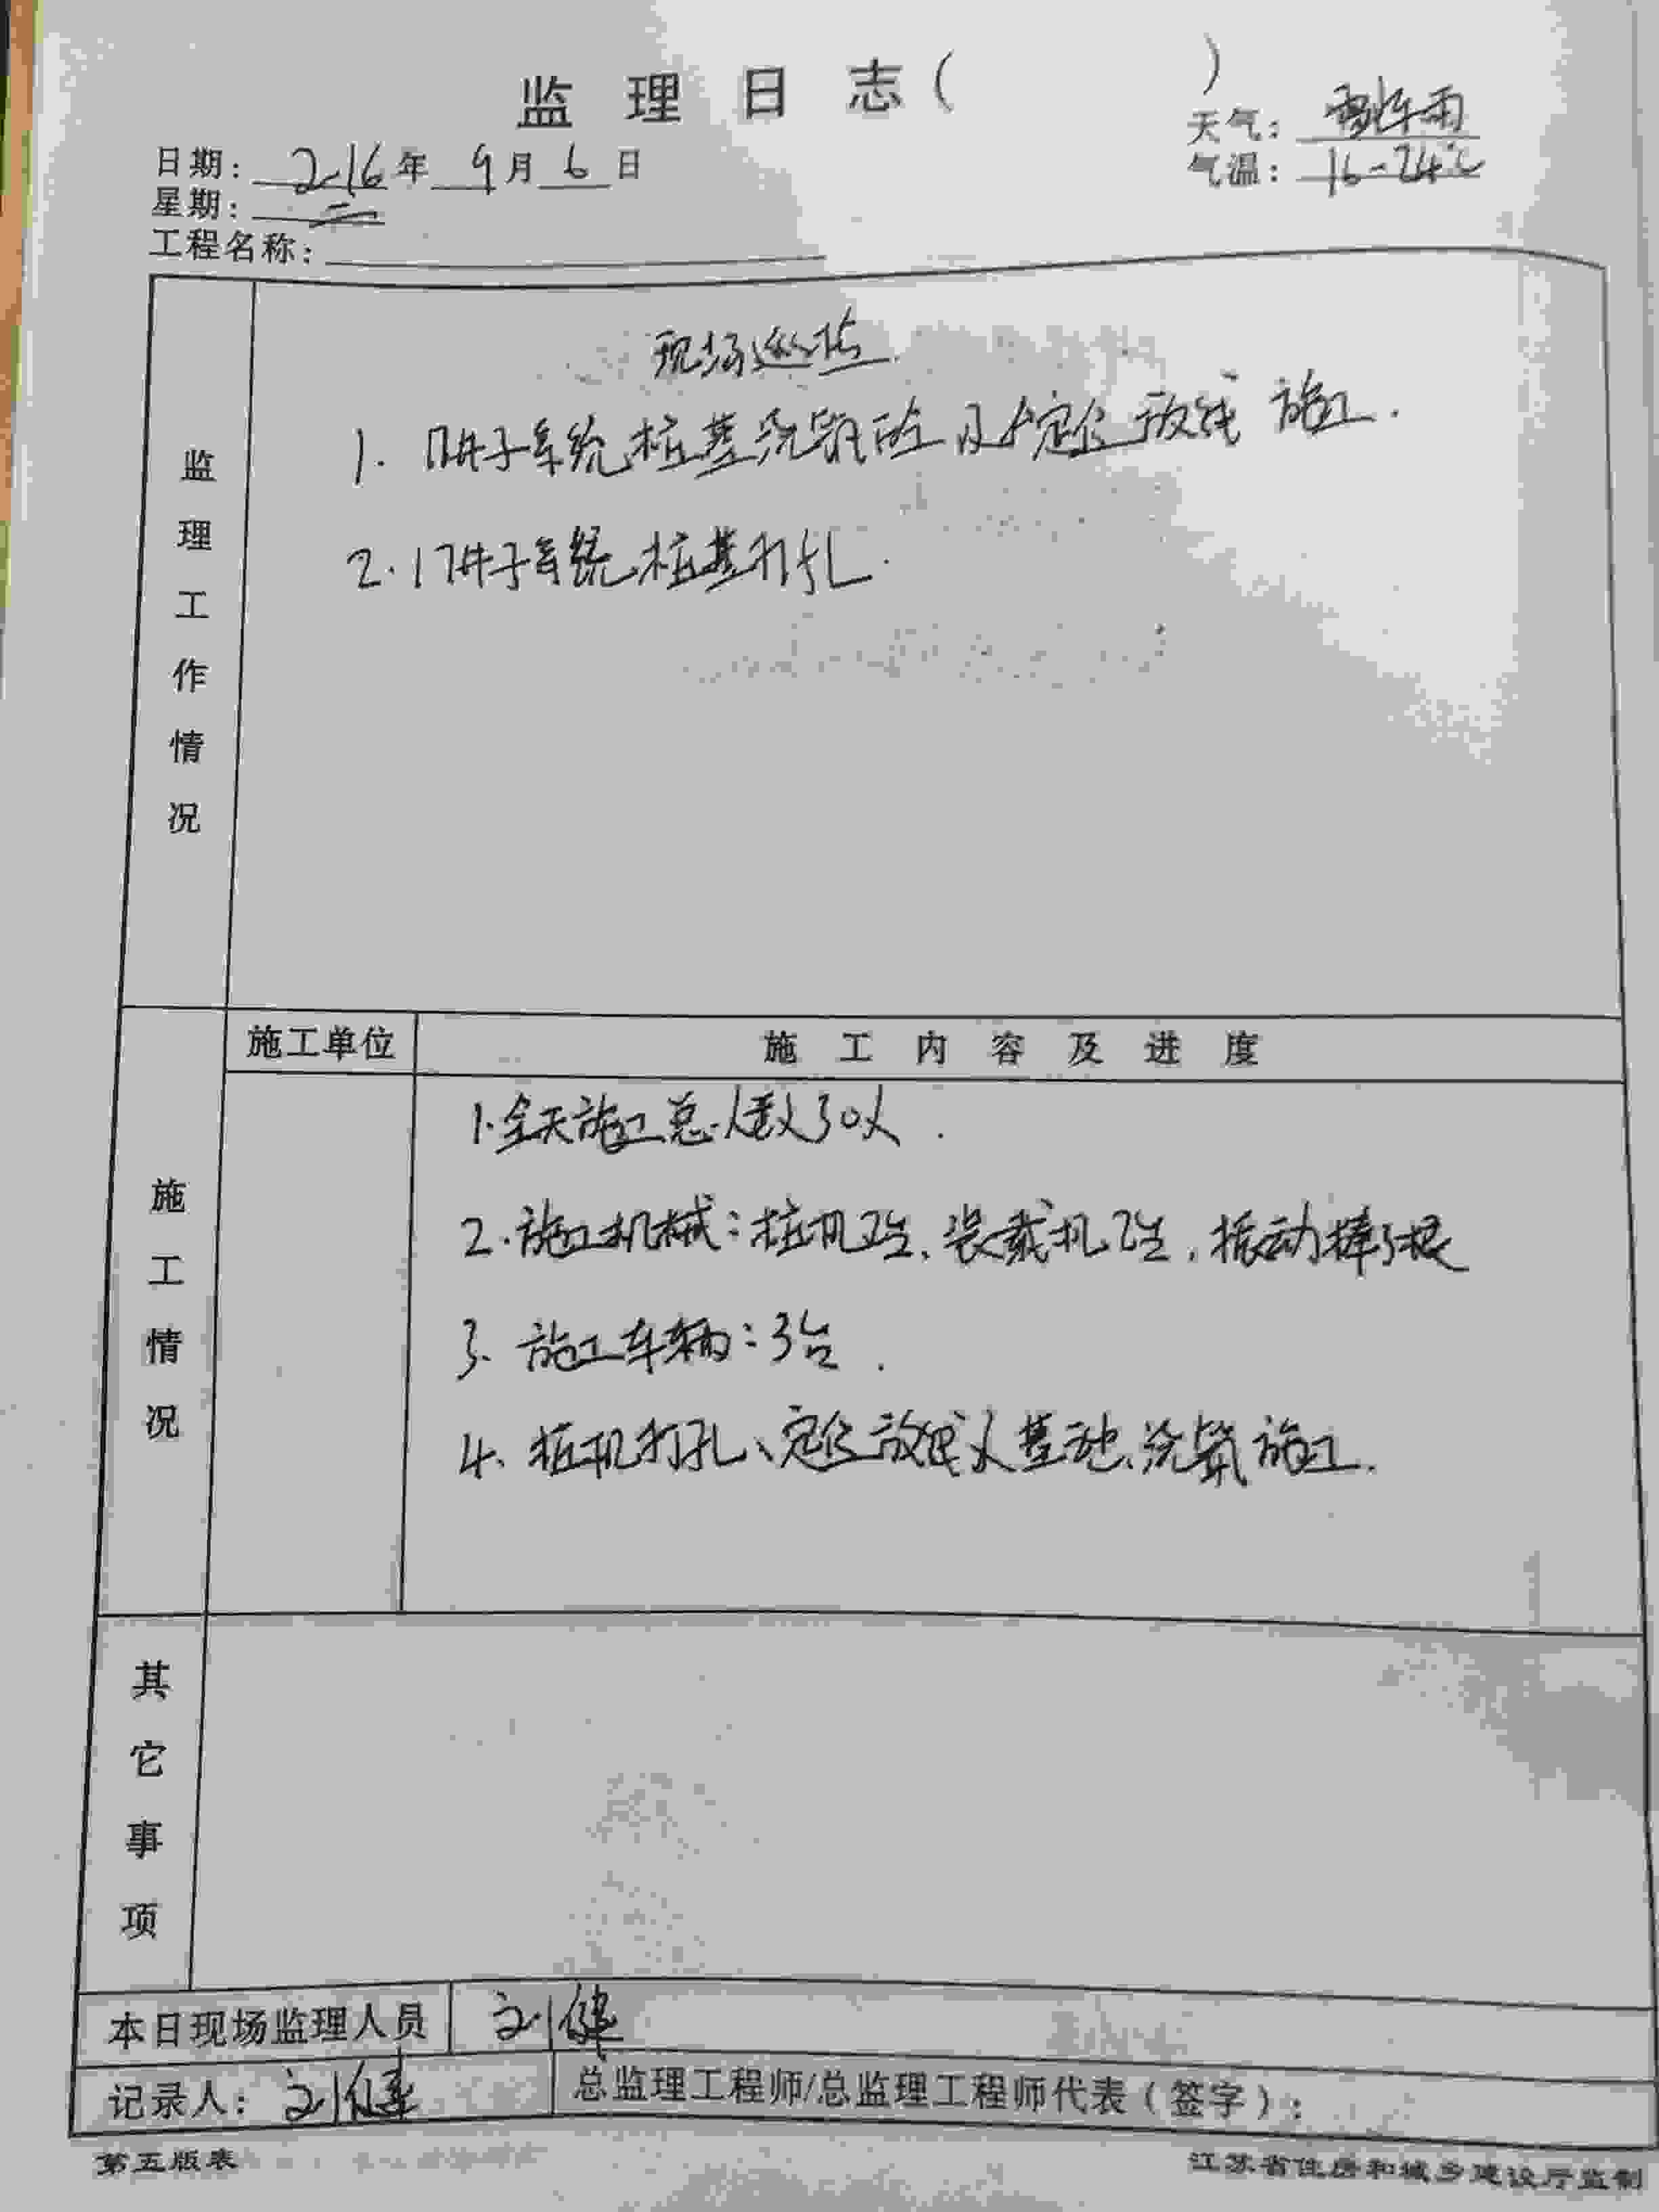 监理日志( )
天气：雷阵雨
日期：2016年9月6日
气温：16-24℃
星期：二
工程名称：
现场巡检.
1. 子系统桩基浇筑砼及定位放线 施工.
2. 子系统桩基打孔.
监理工作情况
施工单位
施工内容及进度
1.全天施工总人数30人.
2.施工机械：桩机2台、装载机2台，振动棒3根
3. 施工车辆：3台.
4. 桩机打孔、定位放线及基础浇筑施工.
施工情况
其它事项
本日现场监理人员 刘健
记录人：刘健 总监理工程师/总监理工程师代表（签字）：
第五版表
江苏省住房和城乡建设厅监制